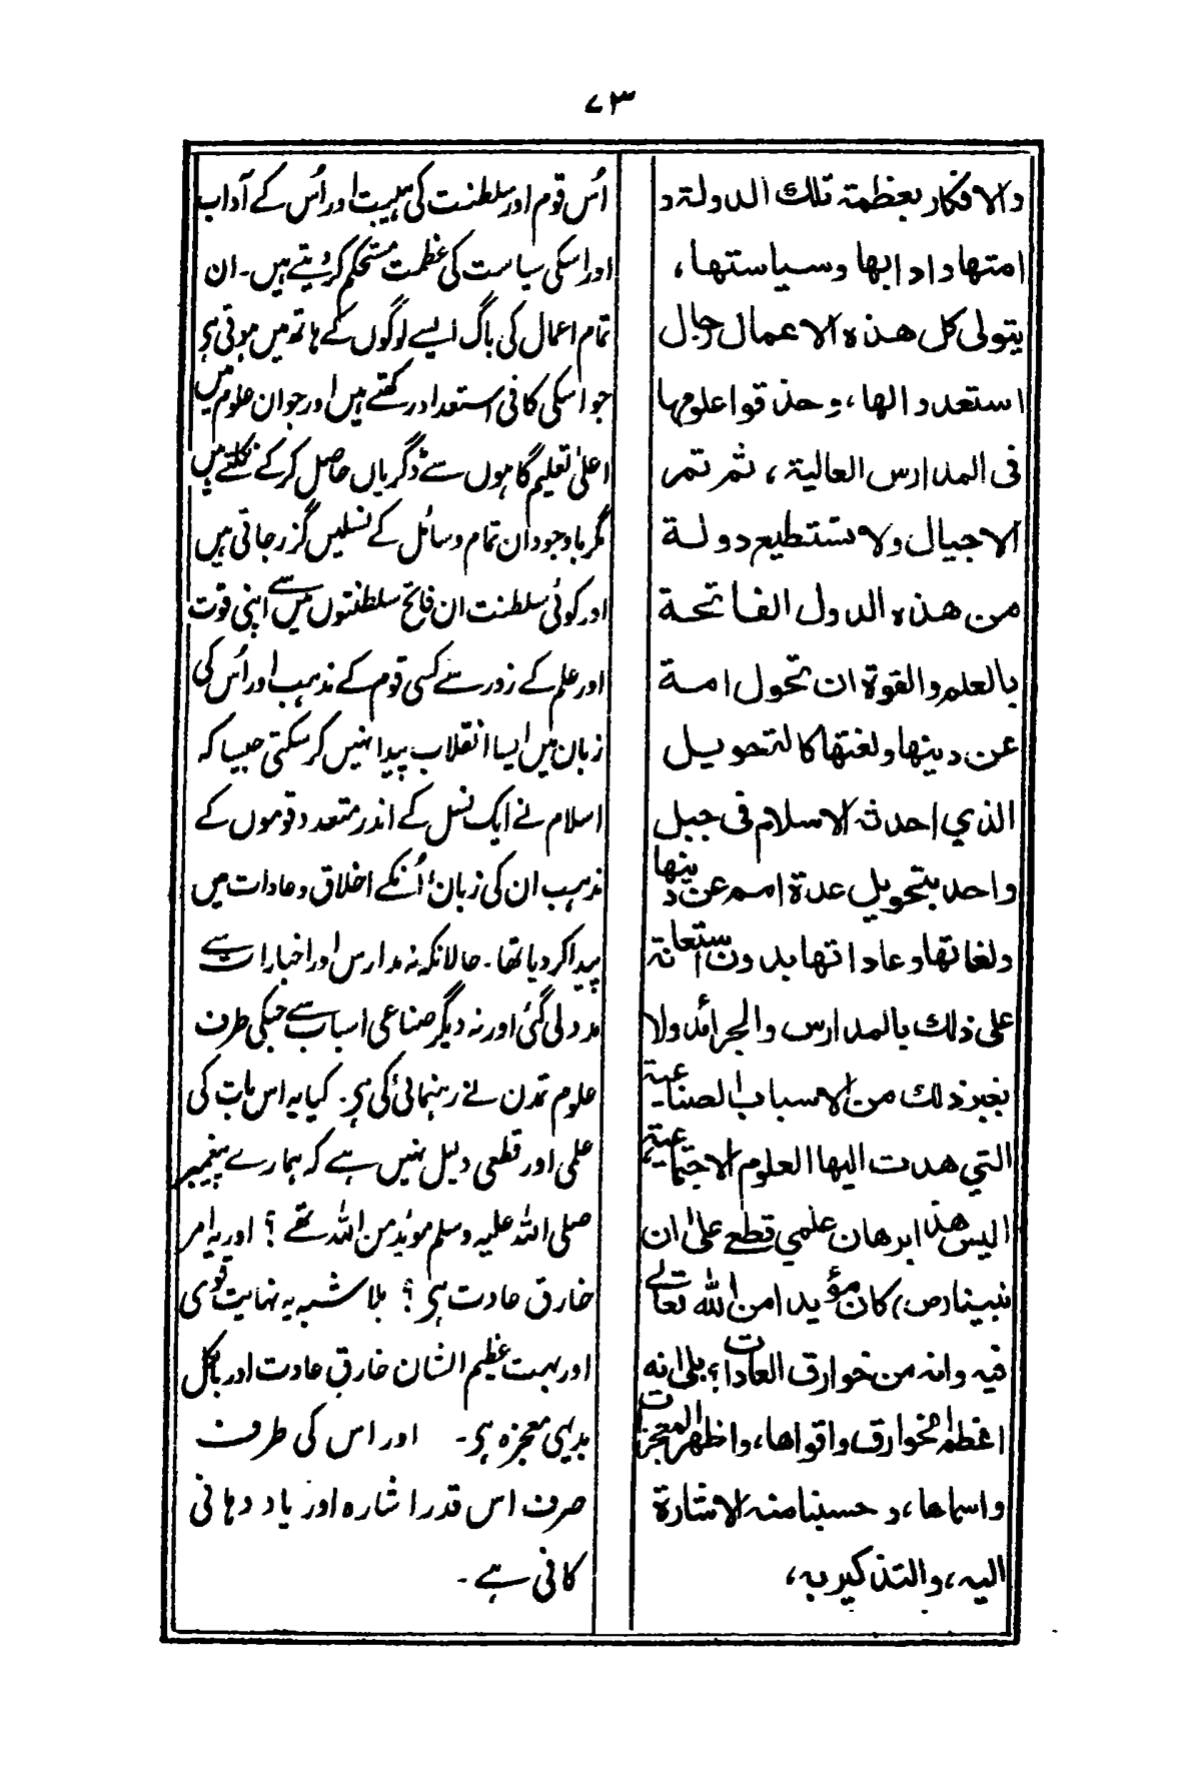 ۷۳
والافکار بعظمة تلك الدولة و
امتها وادابها وسیاستها،
یتولی کل هذه الاعمال رجال
استعدوا لها، وحذقوا علومها
فی المدارس العالیة، ثم تمر
الاجیال ولا تستطیع دولة
من هذه الدول الفاتحة
بالعلم والقوة ان تحول امة
عن دینها ولغتها کالتحویل
الذي احدثه الاسلام فی جیل
واحد بتحویل عدة امم عن دینها
ولغاتها وعاداتها بدون استعانة
علی ذلك بالمدارس والجرائد ولا
بغیر ذلك من الاسباب الصناعیة
التي هدت الیها العلوم الاجتماعیة
الیس هذا برهان علمي قطعی علیٰ ان
نبینا (ص) کان مؤیدا من الله تعالے
فیه وانه من خوارق العادات؟ بلیٰ انه
اعظم الخوارق واقواها، واظهر المعجزات
واسماها، وحسبنا منه الاشارة
الیه، والتذکیر به،
اُس قوم اور سلطنت کی ہیبت اور اُس کے آداب
اور اسکی سیاست کی عظمت مستحکم کر دیتے ہیں۔ ان
تمام اعمال کی باگ ایسے لوگوں کے ہاتھ میں ہوتی ہی
جو اسکی کافی استعداد رکھتے ہیں اور جو ان علوم میں
اعلیٰ تعلیم گاہوں سے ڈگریاں حاصل کر کے نکلتے ہیں
مگر باوجود ان تمام وسائل کے نسلیں گزر جاتی ہیں
اور کوئی سلطنت ان فاتح سلطنتوں میں سے اپنی قوت
اور علم کے زور سے کسی قوم کے مذہب اور اُس کی
زبان میں ایسا انقلاب پیدا نہیں کر سکتی جیسا کہ
اسلام نے ایک نسل کے اندر متعدد قوموں کے
مذہب ان کی زبان، اُنکے اخلاق و عادات میں
پیدا کر دیا تھا۔ حالانکہ نہ مدارس اور اخبارات سے
مدد لی گئی اور نہ دیگر صناعی اسباب سے جنکی طرف
علوم تمدن نے رہنمائی کی ہی۔ کیا یہ اس بات کی
علمی اور قطعی دلیل نہیں ہے کہ ہمارے پیغمبر
صلی اللہ علیہ وسلم موئد من اللہ تھے؟ اور یہ امر
خارق عادت ہی؟ بلا شبہ یہ نہایت قوی
اور بہت عظیم الشان خارق عادت اور بالکل
بدیہی معجزہ ہی۔ اور اس کی طرف
صرف اس قدر اشارہ اور یاد دہانی
کافی ہے۔